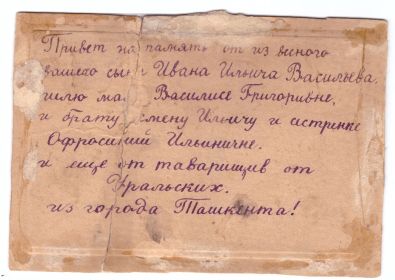 Привет на память от из весного
вашего сына Ивана Ильича Васильева.
шлю ма Василисе Григоривне,
и брату Семену Ильичу и сестренке
Офросинии Ильиничне.
и еще от таварищив от
Уральских.
из города Ташкента!